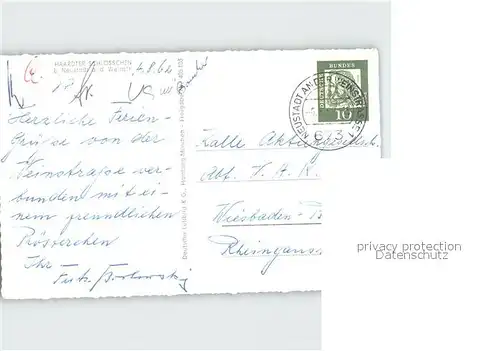 HAARDTER SCHLÖSSCHEN
b. Neustadt a. d. Weinstr.
4.8.62
Herzliche Ferien-
Grüsse von der
Weinstraße ver-
bunden mit ei-
nem freundlichen
Prösterchen
Ihr
DEUTSCHE BUNDESPOST
10
NEUSTADT AN DER WEINSTRASSE
673
Kalle Aktiengesellsch.
Abt. V. A. K.
Wiesbaden-B
Rheingaus
privacy protection
Datenschutz